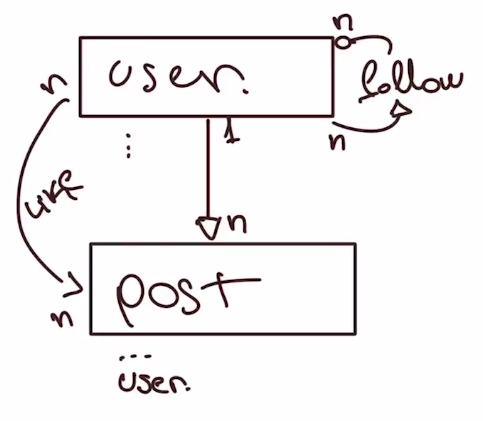 n
user.
n
follow
n
1
n
like
n
post
n
...
user.